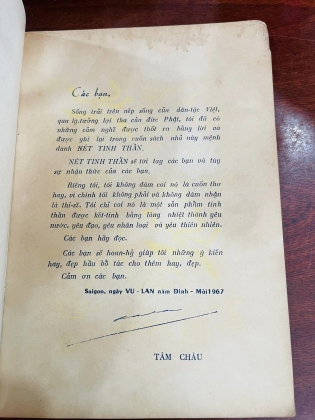 Các bạn,
Sống trải trên nếp sống của dân-tộc Việt,
qua lý tưởng lợi tha của đức Phật, tôi đã có
những cảm nghĩ được thốt ra bằng lời và
được ghi lại trong cuốn sách nhỏ này mệnh
danh NÉT TINH THẦN.
NÉT TINH THẦN sẽ tới tay các bạn và tùy
sự nhận thức của các bạn.
Riêng tôi, tôi không dám coi nó là cuốn thơ
hay, vì chính tôi không phải và không dám nhận
là thi-sĩ. Tôi chỉ coi nó là một sản phẩm tinh
thần được kết-tinh bằng lòng nhiệt thành yêu
nước, yêu đạo, yêu nhân loại và yêu thiên nhiên.
Các bạn hãy đọc.
Các bạn sẽ hoan-hỷ giúp tôi những ý kiến
hay, đẹp hầu bổ tác cho thêm hay, đẹp.
Cảm ơn các bạn.
Saigon, ngày VU - LAN năm Đinh - Mùi 1967
TÂM CHÂU